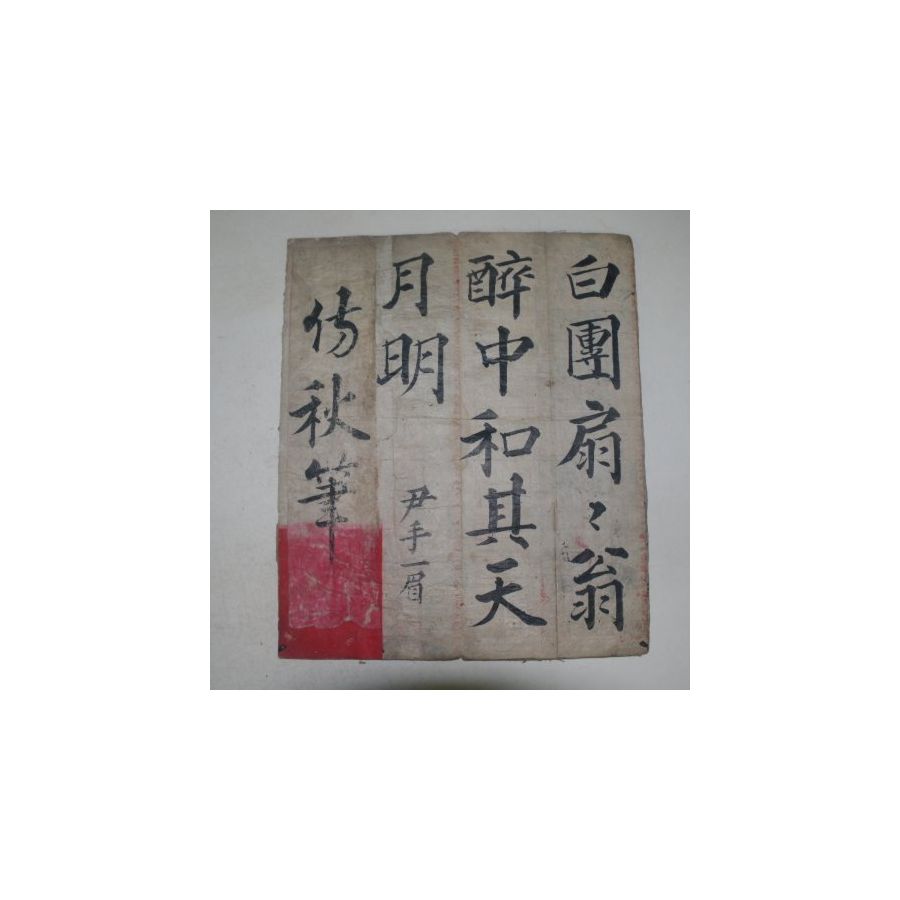 白團扇々翁
醉中和其天
月明
尹手一眉
仿秋筆